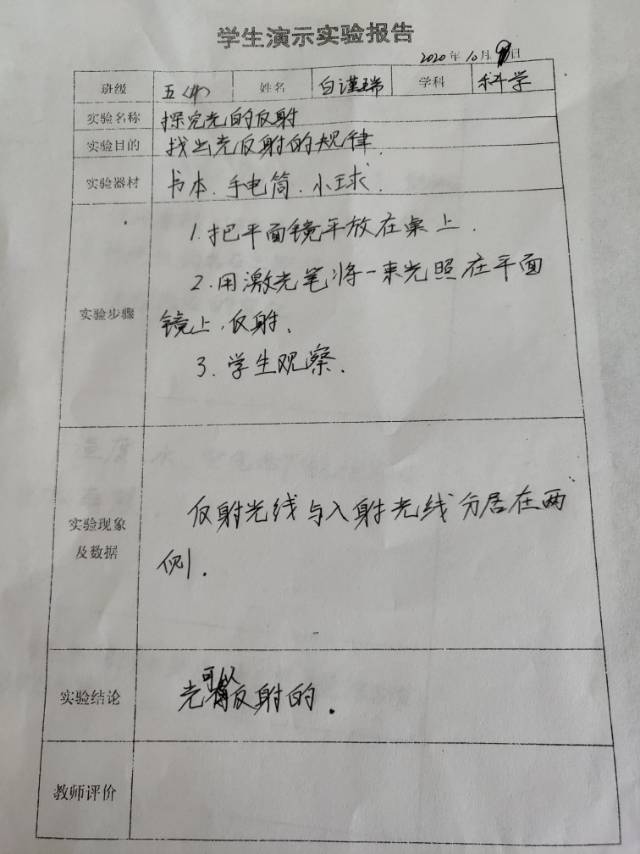 学生演示实验报告
2020年10月 日
班级 五〈4〉 姓名 白谨瑞 学科 科学
实验名称 探究光的反射
实验目的 找出光反射的规律.
实验器材 书本、手电筒、小球.
实验步骤
1.把平面镜平放在桌上.
2.用激光笔将一束光照在平面
镜上,反射.
3.学生观察.
实验现象
及数据
反射光线与入射光线分居在两
侧.
实验结论 光可以反射的.
教师评价